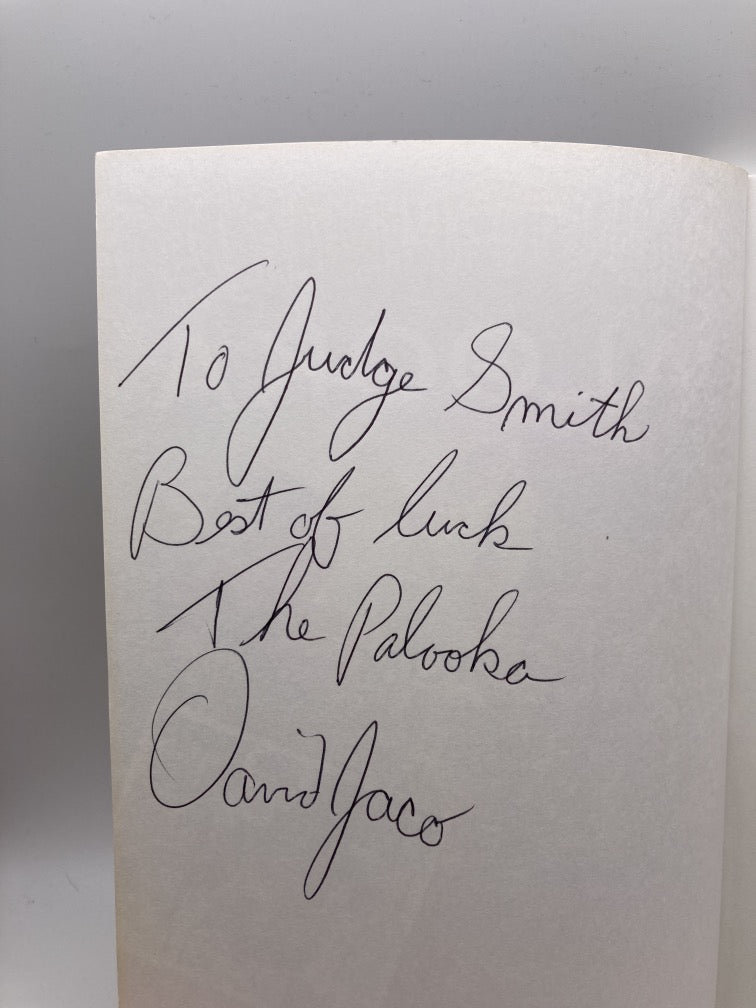 To Judge Smith
Best of luck
The Palooka
David Jaco